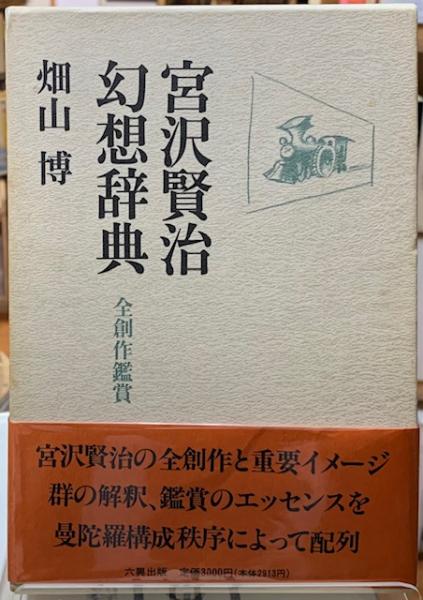 宮沢賢治
幻想辞典
全創作鑑賞
畑山 博
宮沢賢治の全創作と重要イメージ
群の解釈、鑑賞のエッセンスを
曼陀羅構成秩序によって配列
六興出版 定価3000円(本体2913円)